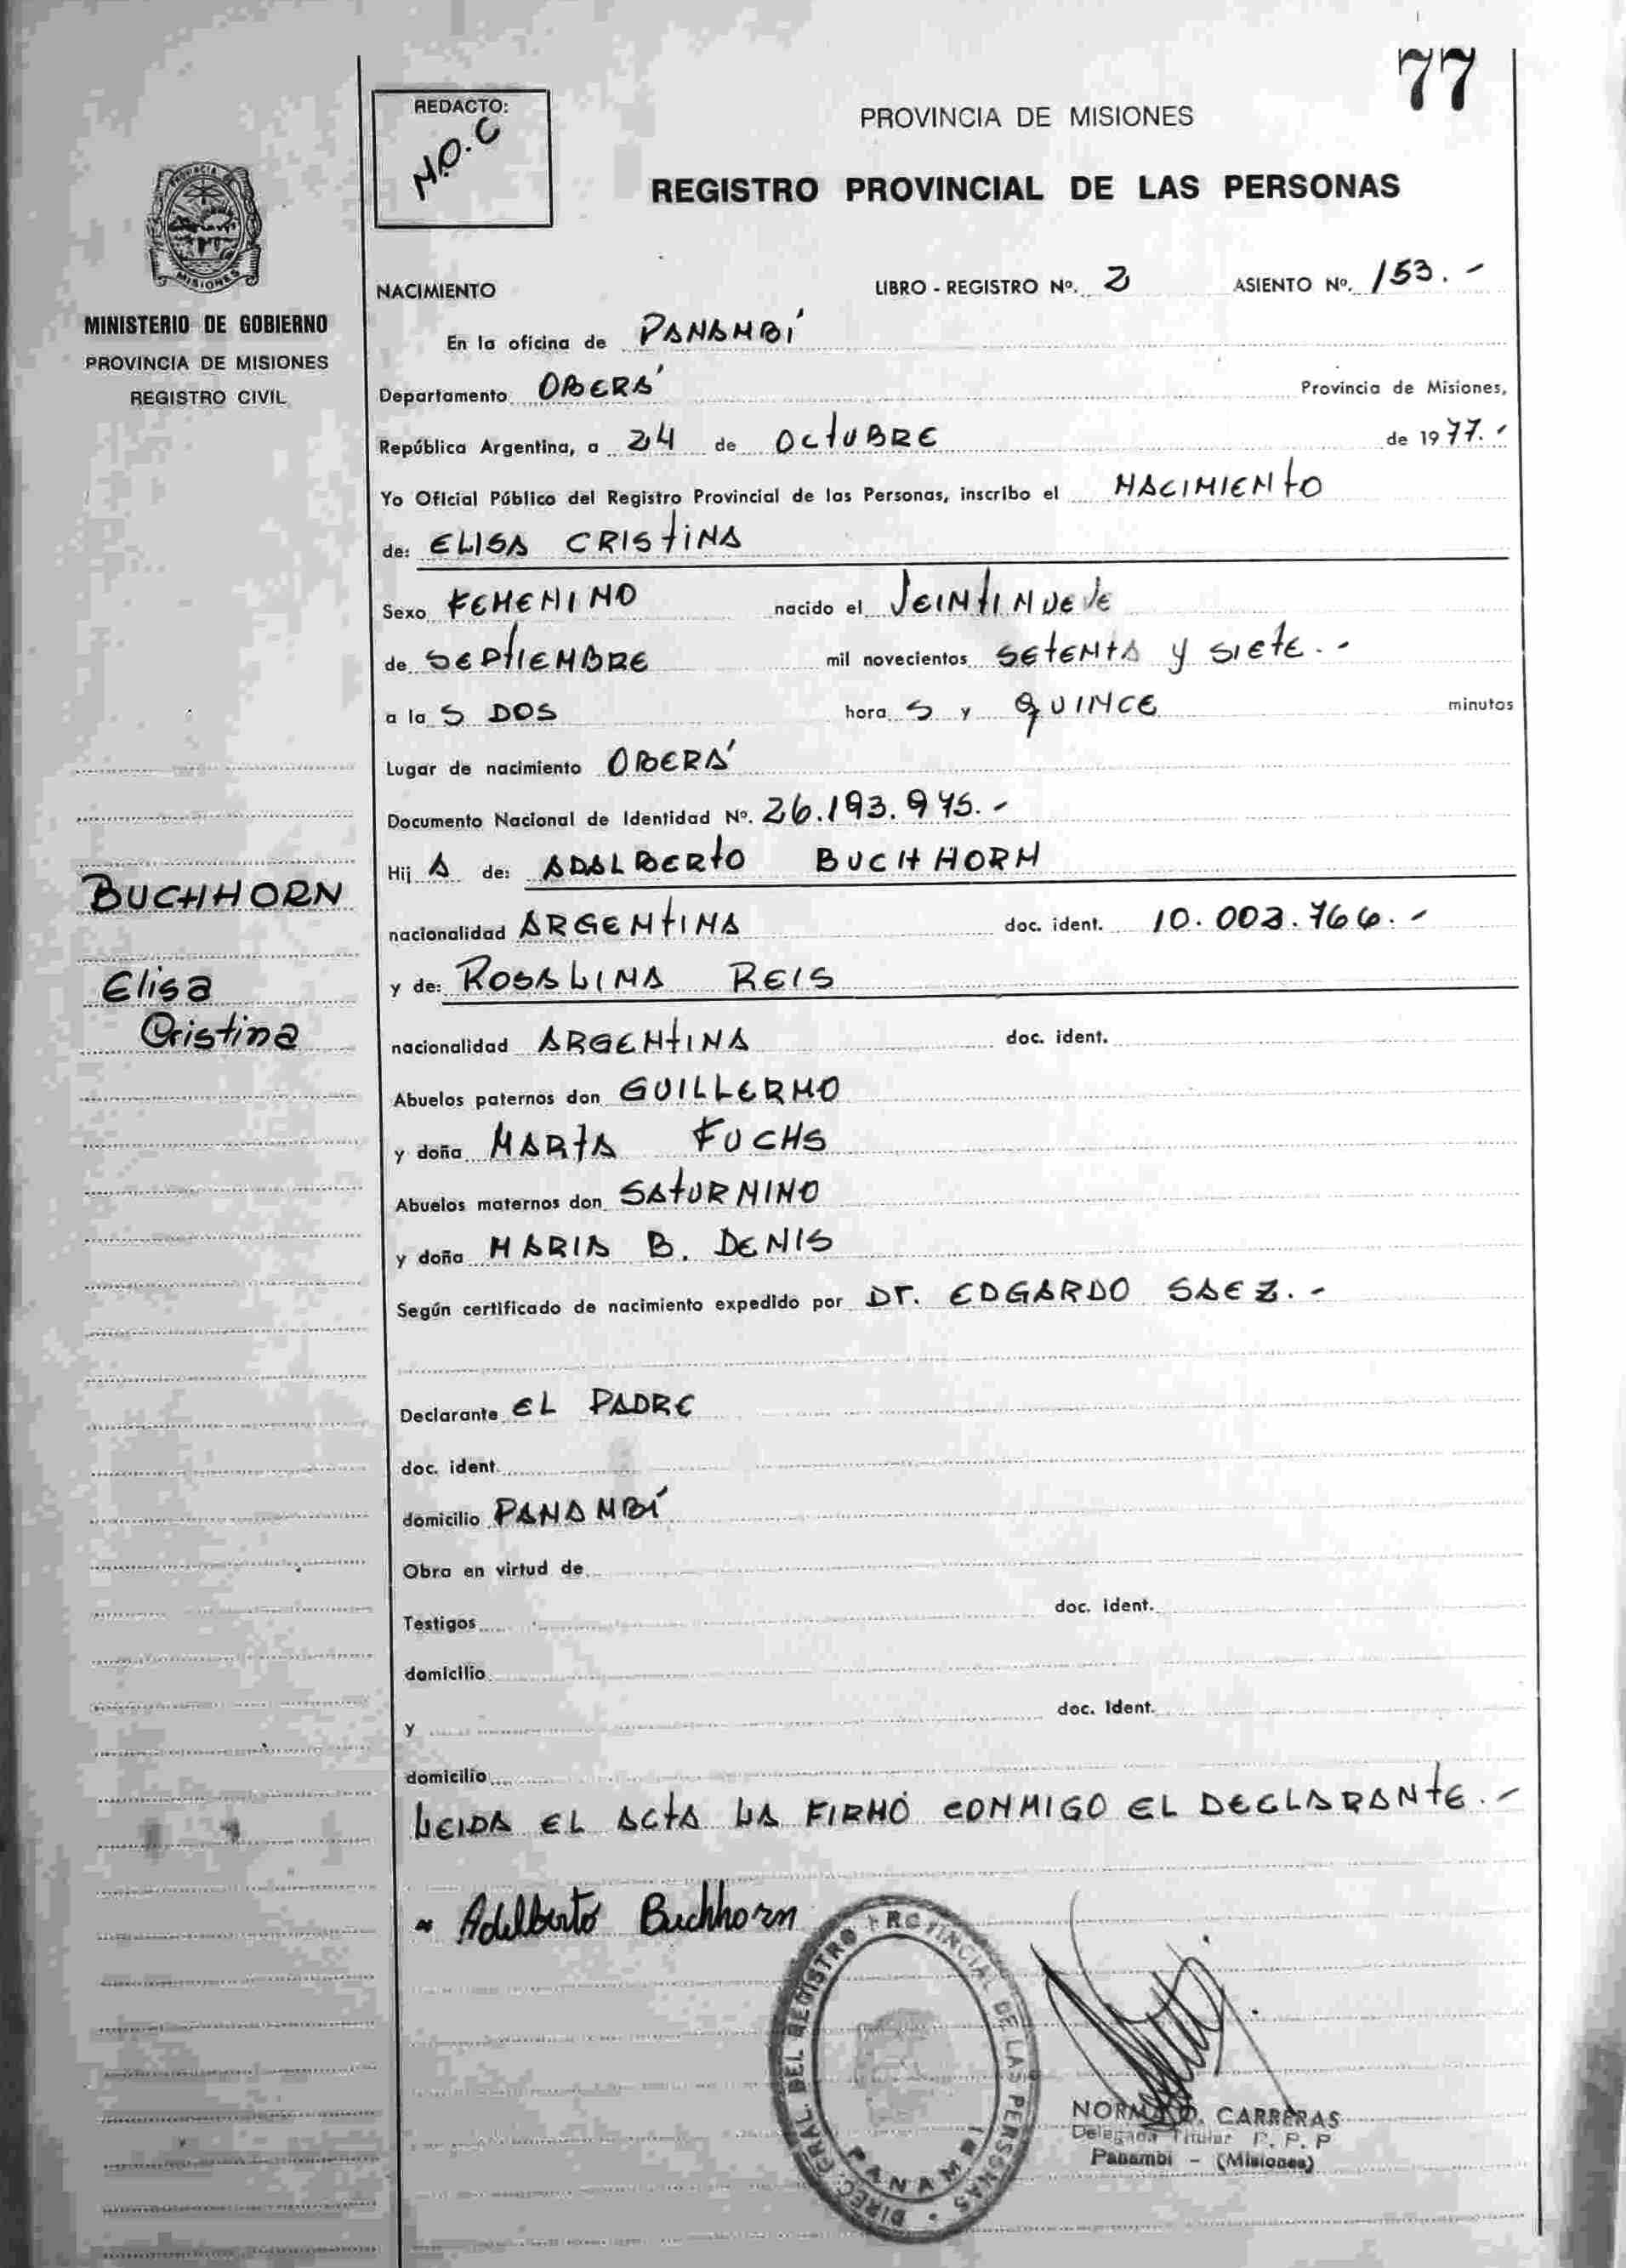 77
REDACTO:
N.O.C
PROVINCIA DE MISIONES
REGISTRO PROVINCIAL DE LAS PERSONAS
MISIONES
MINISTERIO DE GOBIERNO
PROVINCIA DE MISIONES
REGISTRO CIVIL
NACIMIENTO LIBRO - REGISTRO Nº. 2 ASIENTO Nº. 153.-
En la oficina de PANAMBÍ
Departamento OBERÁ Provincia de Misiones,
República Argentina, a 24 de OCTUBRE de 1977.-
Yo Oficial Público del Registro Provincial de las Personas, inscribo el NACIMIENTO
de: ELISA CRISTINA
Sexo FEMENINO nacido el VEINTINUEVE
de SEPTIEMBRE mil novecientos SETENTA y SIETE.-
a la S DOS hora S y QUINCE minutos
Lugar de nacimiento OBERÁ
Documento Nacional de Identidad Nº. 26.193.975.-
Hij A de: ADALBERTO BUCHHORN
BUCHHORN
nacionalidad ARGENTINA doc. ident. 10.002.766.-
Elisa
y de: ROSALINA REIS
Cristina
nacionalidad ARGENTINA doc. ident.
Abuelos paternos don GUILLERMO
y doña MARTA FUCHS
Abuelos maternos don SATURNINO
y doña MARIA B. DENIS
Según certificado de nacimiento expedido por DT. EDGARDO SAEZ.-
Declarante EL PADRE
doc. ident.
domicilio PANAMBÍ
Obra en virtud de
Testigos doc. ident.
domicilio
y doc. ident.
domicilio
LEIDA EL ACTA LA FIRMÓ CONMIGO EL DECLARANTE.-
Adelberto Buchhorn
DIREC. GRAL. DEL REGISTRO PROVINCIAL DE LAS PERSONAS
PANAMBI
NORMA O. CARRERAS
Delegada Titular R. P. P
Panambi - (Misiones)